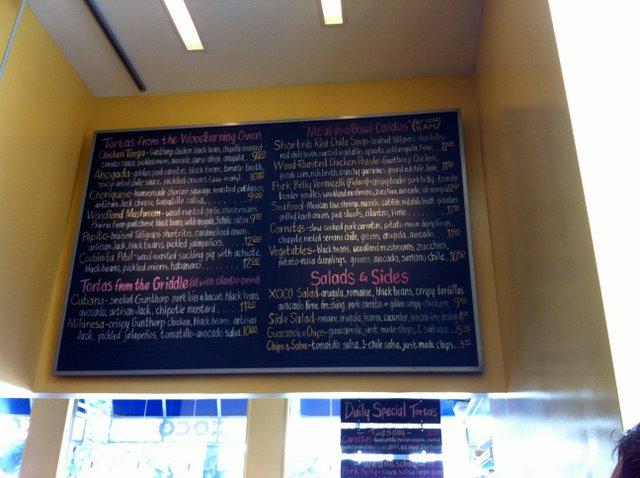 Tortas from the Woodburning Oven
Chicken Tinga - Gunthorp chicken, black beans, chipotle-roasted
tomato sauce, pickled onions, avocado, queso añejo, arugula
Ahogada - golden pork carnitas, black beans, tomato broth,
spicy arbol chile sauce, pickled onions
Choriqueso - homemade chorizo sausage, roasted poblanos
artisan Jack cheese, tomatillo salsa
Woodland Mushroom - wood-roasted garlic mushrooms
Prairie Farm goat cheese, black beans, wild arugula, 3 chile salsa
Pepito - braised Tallgrass shortribs, caramelized onion,
artisan Jack, black beans, pickled jalapeños 12.00
Cochinita Pibil - wood roasted suckling pig with achiote,
black beans, pickled onions, habanero 12.00
Tortas from the Griddle (all with cilantro crema)
Cubana - smoked Gunthorp pork loin & bacon, black beans,
avocado, artisan Jack, chipotle mustard
Milanesa - crispy Gunthorp chicken, black beans, artisan
Jack, pickled jalapeños, tomatillo-avocado salsa
"Meal-in-a-Bowl Caldos" (AFTER 11AM)
Shortrib Red Chile Soup - braised Tallgrass shortribs,
red chile broth, roasted vegetables, arugula, lime
Wood-Roasted Chicken Pozole - Gunthorp Chicken,
pozole corn, rich broth, crunchy garnishes, ground red chile, lime
Pork Belly Vermicelli (Fideos) - crispy tender pork belly, tomato
woodland mushrooms, zucchini, avocado, salsa negra
Seafood - Mexican blue shrimp, mussels, catfish, red chile broth, potatoes
grilled knob onion, pea shoots, cilantro, lime
Carnitas - slow cooked pork carnitas, potato-masa dumplings,
chayote, roasted serrano chile, greens, arugula, avocado
Vegetables - black beans, woodland mushrooms, zucchini,
potato-masa dumplings, greens, avocado, serrano chile
Salads & Sides
XOCO Salad - arugula, romaine, black beans, crispy tortillas
avocado lime dressing, pork carnitas or crispy chicken
Side Salad - romaine, arugula, jicama, cucumber, avocado lime dressing
Guacamole & Chips - guacamole, just made chips, 2 salsas
Chips & Salsa - tomatillo salsa, 3-chile salsa, just made chips
XOCO
Daily Special Tortas
Tuesday
Carnitas
Wednesday
Pork Belly